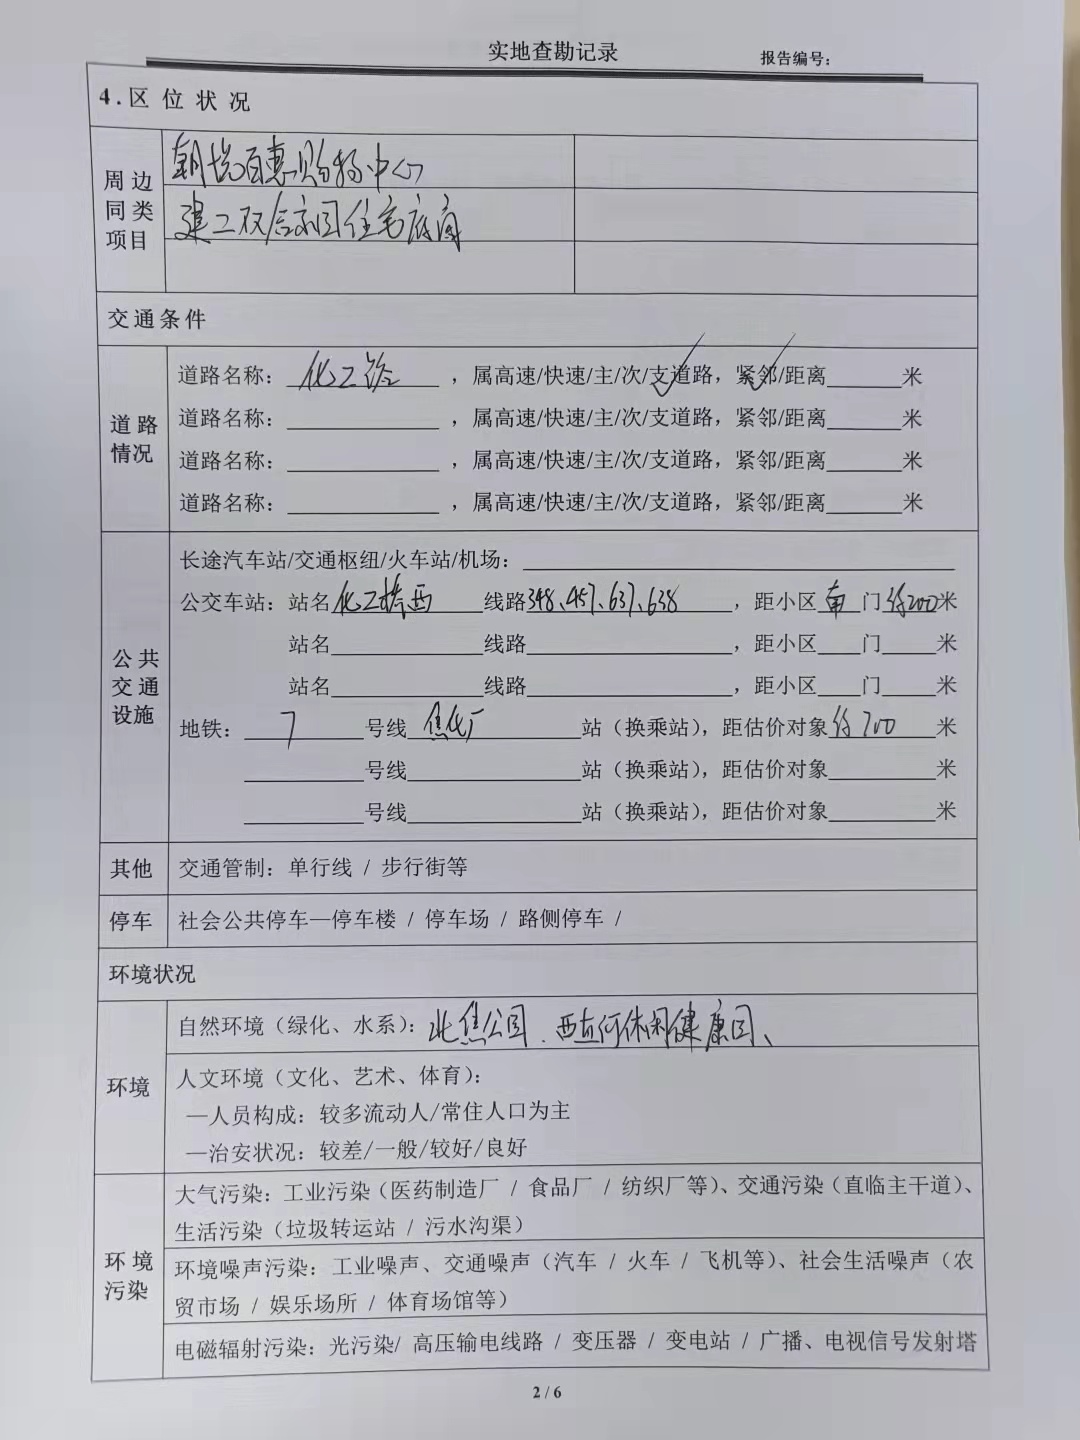 实地查勘记录
报告编号：
4.区 位 状 况
周边同类项目
朝悦百惠购物中心
建工双合家园住宅底商
交通条件
道路情况
道路名称：化工路，属高速/快速/主/次/支道路，紧邻/距离______米
道路名称：____________，属高速/快速/主/次/支道路，紧邻/距离______米
道路名称：____________，属高速/快速/主/次/支道路，紧邻/距离______米
道路名称：____________，属高速/快速/主/次/支道路，紧邻/距离______米
公共交通设施
长途汽车站/交通枢纽/火车站/机场：____________
公交车站：站名化工桥西线路348、457、637、638，距小区南门约200米
站名____________线路____________，距小区____门____米
站名____________线路____________，距小区____门____米
地铁：7号线焦化厂站（换乘站），距估价对象约700米
________号线____________站（换乘站），距估价对象________米
________号线____________站（换乘站），距估价对象________米
其他
交通管制：单行线 / 步行街等
停车
社会公共停车—停车楼 / 停车场 / 路侧停车 /
环境状况
环境
自然环境（绿化、水系）：北焦公园、西直河休闲健康园、
人文环境（文化、艺术、体育）：
—人员构成：较多流动人/常住人口为主
—治安状况：较差/一般/较好/良好
环境污染
大气污染：工业污染（医药制造厂 / 食品厂 / 纺织厂等）、交通污染（直临主干道）、
生活污染（垃圾转运站 / 污水沟渠）
环境噪声污染：工业噪声、交通噪声（汽车 / 火车 / 飞机等）、社会生活噪声（农
贸市场 / 娱乐场所 / 体育场馆等）
电磁辐射污染：光污染/ 高压输电线路 / 变压器 / 变电站 / 广播、电视信号发射塔
2 / 6